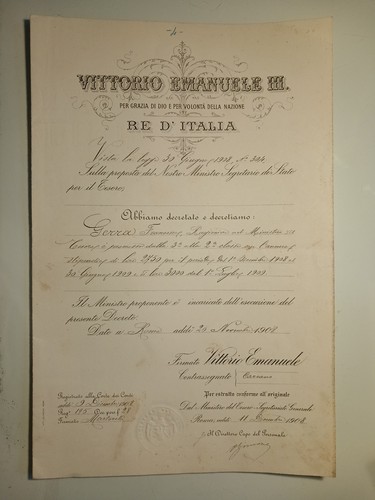 VITTORIO EMANUELE III.
PER GRAZIA DI DIO E PER VOLONTÀ DELLA NAZIONE
RE D'ITALIA
Vista la legge 30 Giugno 1908, N. 304
Sulla proposta del Nostro Ministro Segretario di Stato
per il Tesoro;
Abbiamo decretato e decretiamo:
nel Ministero del
Tesoro, è promosso dalla 3ª alla 2ª classe
stipendio di lire 2750 per il dal 1º 1908 al
30 Giugno 1909 e lire 3000 dal 1º Luglio 1909.
Il Ministro proponente è incaricato dell'esecuzione del
presente Decreto.
Dato a Roma addì 20 Novembre 1908
Firmato Vittorio Emanuele
Contrassegnato Carcano
Registrato alla Corte dei Conti
addì 9 Dicembre 1908
Per estratto conforme all'originale
Dal Ministero del Tesoro Segretariato Generale
Roma, addì 11 Dicembre 1908
Il Direttore Capo del Personale